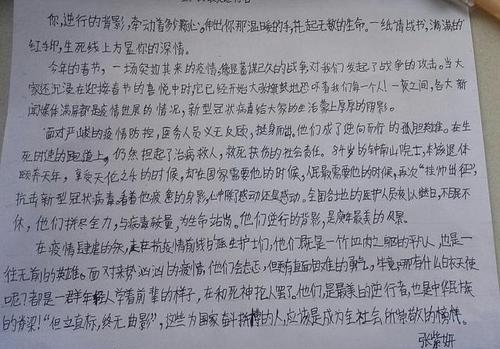 你,逆行的背影,牵动着多少颗心。伸出你那温暖的手,托起无数的生命。一纸请战书,满满的
红手印,生死线上方显你的深情。
今年的春节,一场突如其来的疫情,像是蓄谋已久的战争对我们发起了战争的攻击。当大
家还沉浸在迎接春节的喜悦中时,它已经开始大张旗鼓地恐吓着我们每一个人!一夜之间,各大新
闻媒体满屏都是疫情进展的情况,新型冠状病毒给大家的生活蒙上厚厚的阴影。
面对严峻的疫情防控,医务人员义无反顾,挺身而出,他们成了逆向而行的孤胆英雄。在生
死时速的跑道上,仍然担起了治病救人,救死扶伤的社会责任。84岁的钟南山院士,本该退休
颐养天年,享受天伦之乐的时候,却在国家需要他的时候,人民最需要他的时候,再次“挂帅出征”,
抗击新型冠状病毒。看着他疲惫的身影,心中除了感动还是感动。全国各地的医护人员夜以继日,不眠不
休,他们拼尽全力,与病毒较量,为生命站岗。他们逆行的背影,是庚年最美的风景。
在疫情肆虐的冬天,走在抗疫情前线的医生护士们,他们既是一个有血有肉的平凡人,也是一
往无前的英雄。面对来势汹汹的疫情,他们会害怕,但更有直面困难的勇气。毕竟哪有什么白衣天使
呢?都是一群年轻人学着前辈的样子,在和死神抢人罢了。他们是最美的逆行者,也是中华民族
的脊梁!“但立直标,终无曲影”,这些为国家奋斗拼搏的人,应该是成为全社会所崇敬的榜样。
张紫妍